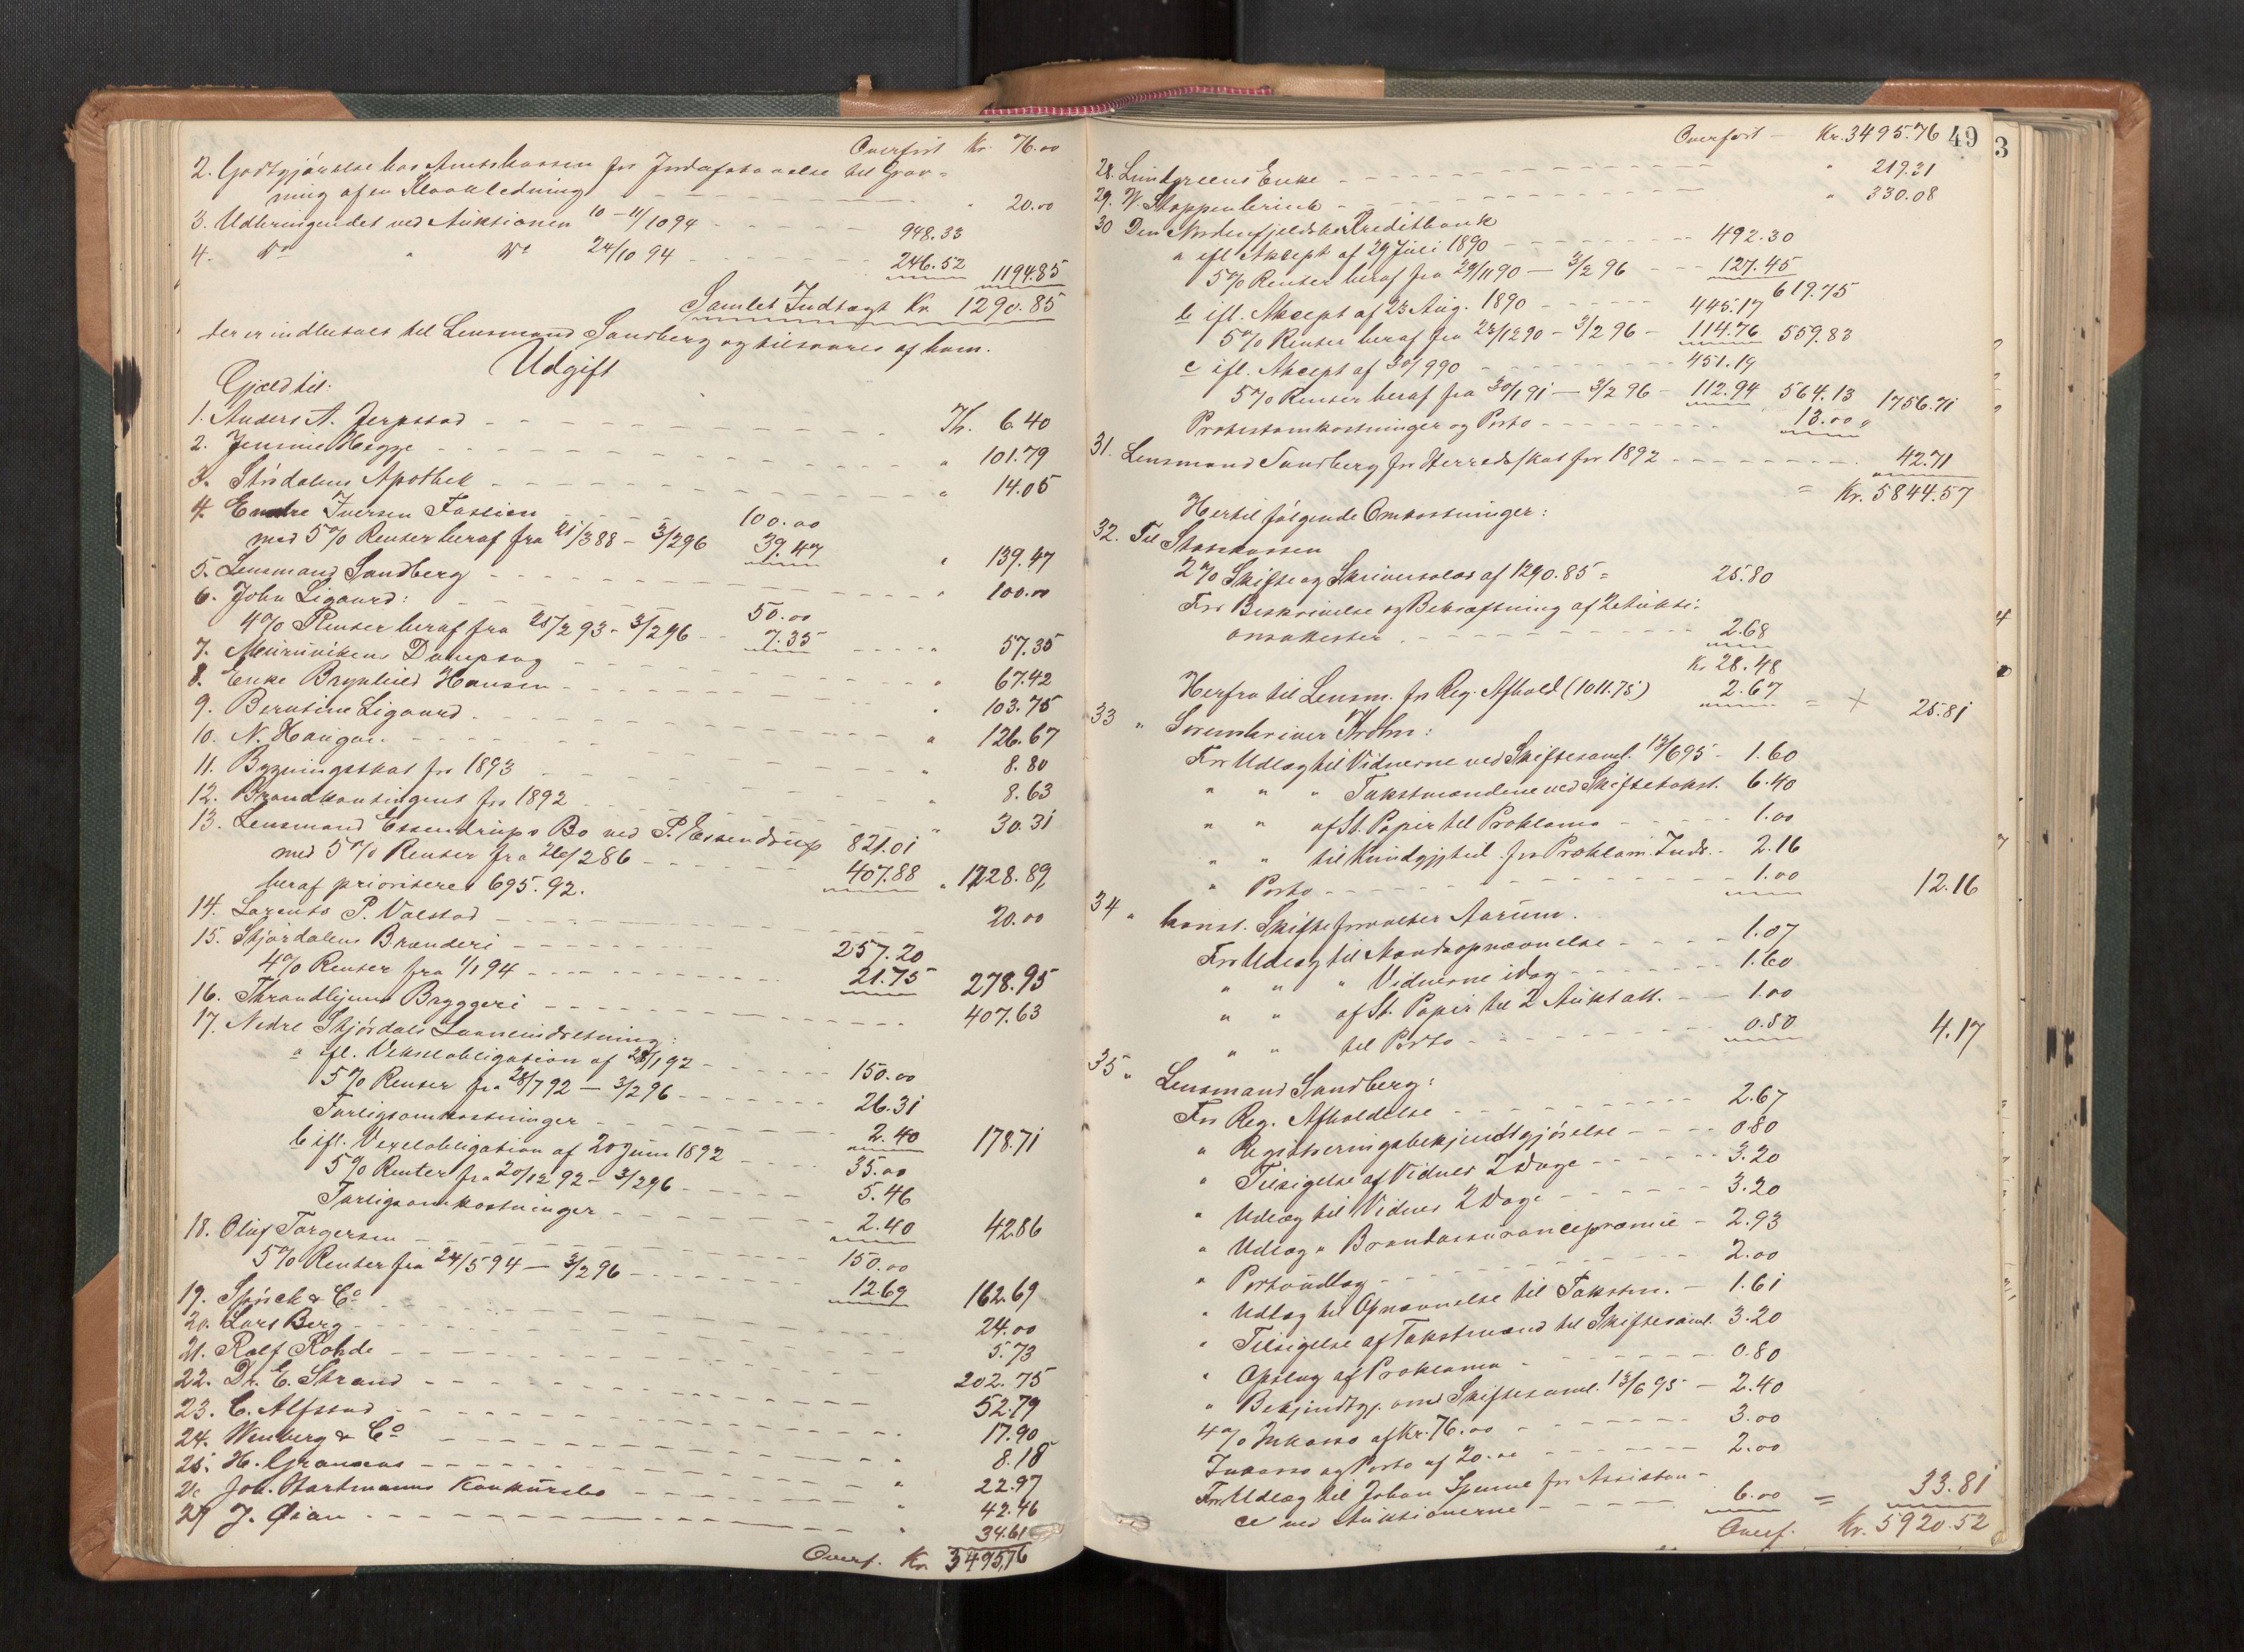 Overført Kr. 76.00
2. Godtgjørelse hos Amtskassen for Jordafstaaelse til Grav=
ning af en Kloakledning - - - " 20.00
3. Udbringendet ved Auktionen 10-11/10 94 - - - 948.33
4. Do " Do 24/10 94 - - - 246.52 1194.85
Samlet Indtægt Kr. 1290.85
der er indbetalt til Lensmand Sandberg og tilsvares af ham.
Udgift
Gjæld til:
1. Anders A. Jerpstad - - - Kr. 6.40
2. Jennie Hegge - - - " 101.79
3. Stjørdalens Apothek - - - " 14.05
4. Iversen - - - 100.00
med 5% Renter heraf fra 21/3 88 - 3/2 96 39.47 " 139.47
5. Lensmand Sandberg - - - " 100.00
6. John Ligaard: - - - 50.00
4% Renter heraf fra 25/2 93 - 3/2 96 - - 7.35 - - - " 57.35
7. Muruvikens Dampsag - - - 67.42
8. Enke Brynhild Hansen - - - " 103.75
9. Berntine Ligaard - - - " 126.67
10. N. Haugan - - - " 8.80
11. Bygningsskat for 1893 - - - " 8.63
12. Brandkontingent for 1892 - - - " 30.31
13. Lensmand Essendrups Bo ved P. Essendrup 821.01
med 5% Renter fra 26/2 86 - - - 407.88 " 1228.89
heraf prioriteret 695.92.
14. Lorents P. Valstad - - - 20.00
15. Stjørdalens Brænderi - - - 257.20
4% Renter fra 1/1 94 - - - 21.75 278.95
16. Throndhjems Bryggeri - - - 407.63
17. Nedre Stjørdals Laaneindretning:
a ifl. Vekselobligation af 28/1 92 - - - 150.00
5% Renter fra 28/7 92 - 3/2 96 - - - 26.31
Forligsomkostninger - - - 2.40 178.71
b ifl. Vexelobligation af 20 Juni 1892 - - - 35.00
5% Renter fra 20/12 92 - 3/2 96 - - - 5.46
Forligsomkostninger - - - 2.40 42.86
18. Oluf Torgersen - - - 150.00
5% Renter fra 24/5 94 - 3/2 96 - - - 12.69 162.69
19. Spørck & Co - - - 24.00
20. Lars Berg - - - 5.73
21. Rolf Rohde - - - 202.75
22. Dr. E. Strand - - - 52.79
23. C. Alfstad - - - 17.90
24. Wenberg & Co - - - 8.18
25. H. - - - " 22.97
26 Joh. Hartmanns Konkursbo - - - " 42.46
27 J. Øian - - - " 34.61
Overf. Kr. 3495.76
49
3
Overført - Kr. 3495.76
28. Lundgreens Enke - - - " 219.31
29. W. Stoppenbrink - - - " 330.08
30 Den Nordenfjeldske Kreditbank
a ifl. Aksept af 29 Juli 1890 - - - 492.30
5% Renter heraf fra 29/11 90 - 3/2 96 - - - 127.45 619.75
b ifl. Aksept af 23 Aug. 1890 - - - 445.17
5% Renter heraf fra 23/12 90 - 3/2 96 - 114.76 559.83
c ifl. Aksept af 30/9 90 - - - 451.19
5% Renter heraf fra 30/1 91 - 3/2 96 - 112.94 564.13
Protestomkostninger og Porto - - - 13.00 1756.71
31. Lensmand Sandberg for Herredsskat for 1892 - - - 42.71
= Kr. 5844.57
Hertil følgende Omkostninger:
32. Til Statskassen
2% Skifte og Skriversalær af 1290.85 = 25.80
For Beskrivelse og Bekræftning af 2 Aukti-
onsakester - - - 2.68
Kr 28.48
Herfra til Lensm. for Reg. Afhold (1011.75) 2.67 = + 25.81
33 " Sorenskriver Krohn:
For Udlæg til Vidnerne ved Skiftesaml. 13/6 95 - 1.60
" " " Takstmændene ved Skiftetakst. 6.40
" " af St. Papir til Proklama - - - 1.00
" " til Kundgjtid. for Proklam. Inds. - 2.16
" Porto - - - 1.00 12.16
34 " konst. Skifteforvalter Aarum.
For Udlæg til Mandsopnævnelse - - - 1.07
" " " Vidnerne idag - - - 1.60
" " af St. Papir til 2 Aukt att. - - 1.00
" " til Porto - - - 0.50 4.17
35 " Lensmand Sandberg:
For Reg. Afholdelse - - - 2.67
" Registreringsbekjendtgjørelse - - - 0.80
" Tilsigelse af Vidner 2 Dage - - - 3.20
" Udlæg til Vidner 2 Dage - - - 3.20
" Udlæg " Brandassurancepræmie - 2.93
" Portoudlæg - - - 2.00
" Udlæg til Opnævnelse til Takstm. - 1.61
" Tilsigelse af Takstmænd til Skiftesaml. 3.20
" Opslag af Proklama - - - 0.80
" Bekjendtgj. om Skiftesaml. 13/6 95 - 2.40
4% Inkasso af Kr. 76.00 - - - 3.00
Inkasso og Porto af 20.00 - - - 2.00
For Udlæg til Johan for Assistan-
ce ved Auktionerne - - - 6.00 = 33.81
Overf. Kr. 5920.52